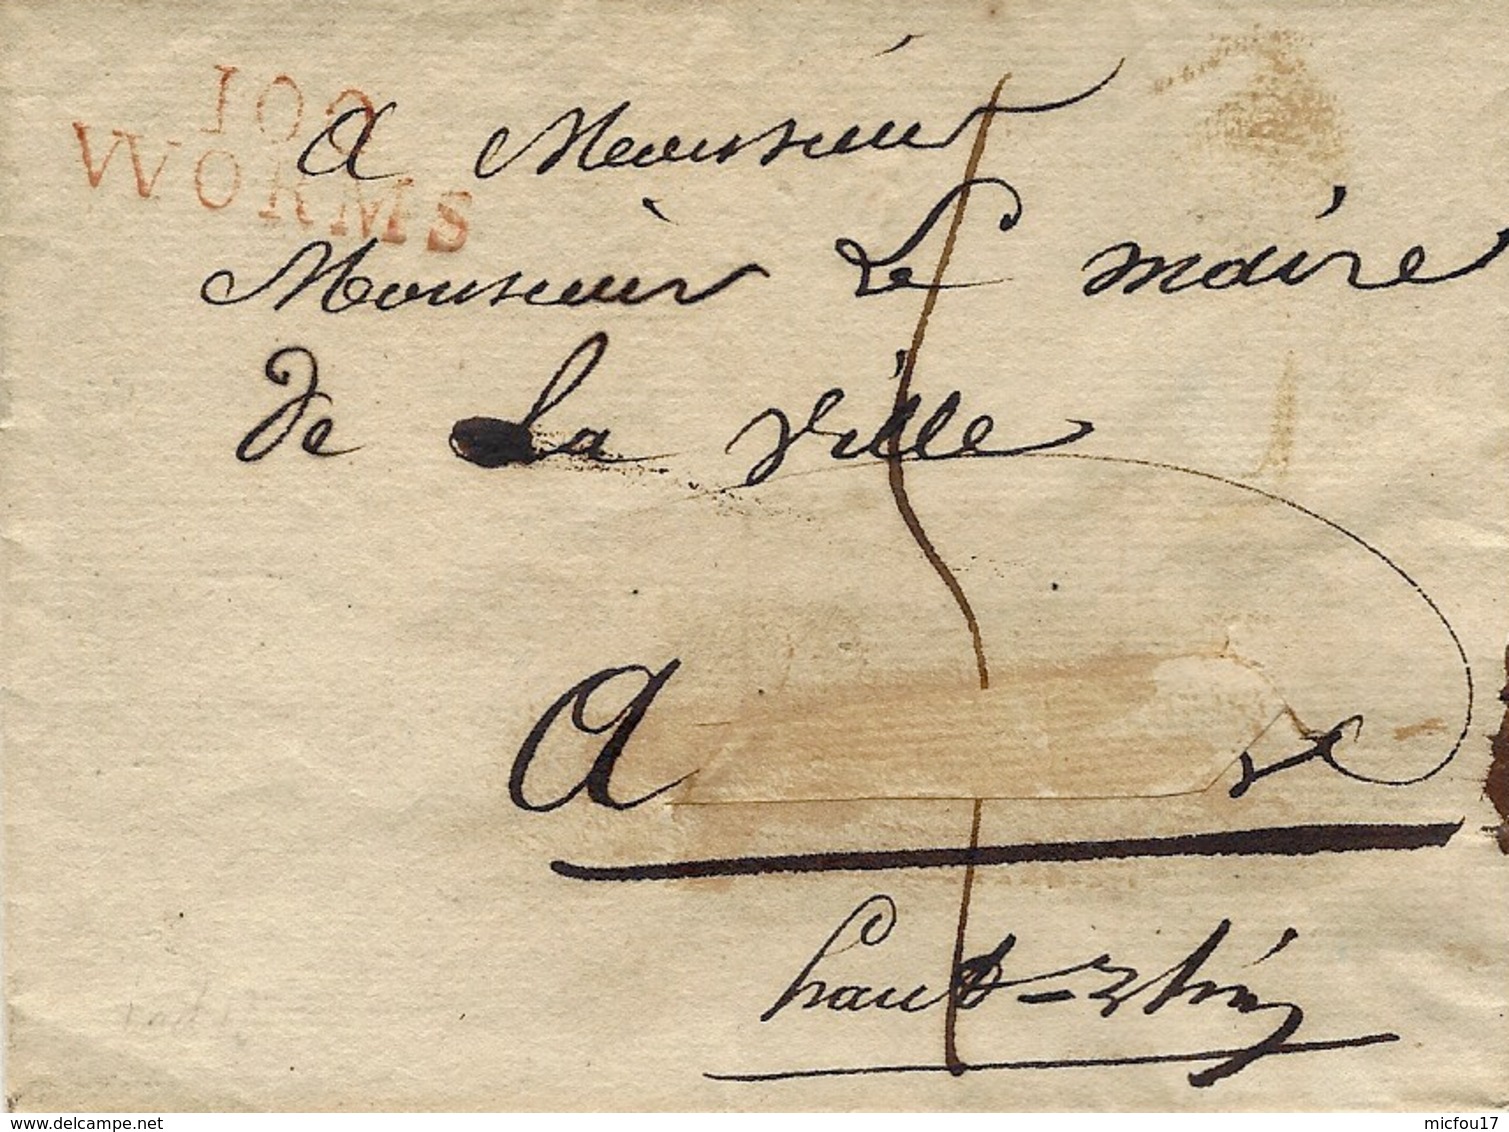 100
WORMS
A Monsieur
Monsieur Le maire
de La ville
A
haut-Rhin
www.delcampe.net
micfou17